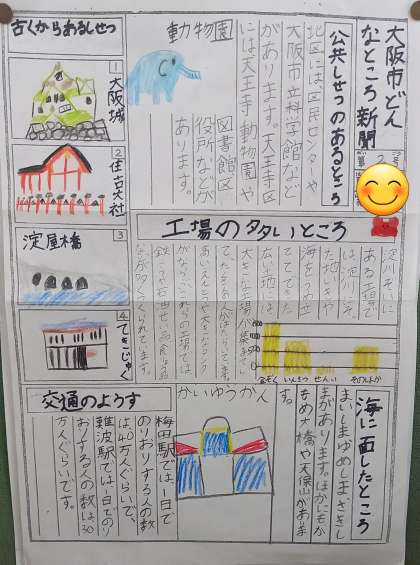 大阪市どん
なところ新聞
第2号
公共しせつのあるところ
北区には区民センターや
大阪市立科学館など
があります。天王寺区
には天王寺動物園や
図書館区
役所などが
あります。
動物園
古くからあるしせつ
1
大阪城
2
住吉大社
3
淀屋橋
4
てきじゅく
工場の多いところ
淀川ぞいに
ある工場で
は淀川ぞ
海をうめ立
てててきた
広い土地は
大きな工場が集まっ
なが多くつくられています。
きんぞく
いんさつ
せんい
そのほか
海に面したところ
まいしまゆめしまさきし
まがあります。ほかにもか
もめ大橋や天保山があり
ます。
かいゆうかん
交通のようす
梅田駅では、一日で
のりおりする人の数
は40万人ぐらいで、
難波駅では一日でのり
おりする人の数は30
万人ぐらいです。